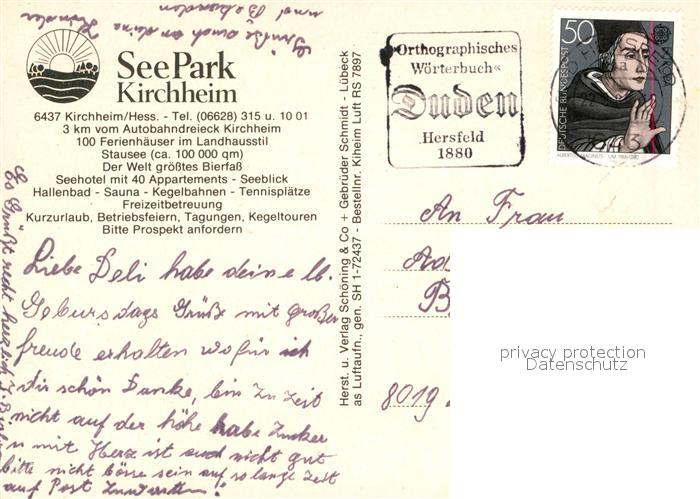 Grüße auch an deine Kinder
und Bekannten
See Park
Kirchheim
6437 Kirchheim/Hess. - Tel. (06628) 315 u. 10 01
3 km vom Autobahndreieck Kirchheim
100 Ferienhäuser im Landhausstil
Stausee (ca. 100 000 qm)
Der Welt größtes Bierfaß
Seehotel mit 40 Appartements - Seeblick
Hallenbad - Sauna - Kegelbahnen - Tennisplätze
Freizeitbetreuung
Kurzurlaub, Betriebsfeiern, Tagungen, Kegeltouren
Bitte Prospekt anfordern
Liebe Deli habe deine lb.
Gebursdags Grüße mit großer
freude erhalten wofür ich
dir schön Danke, bin Zu Zeit
nicht auf der höhe habe Zucker
u mit Herz ist auch nicht gut
bitte nicht bösse sein auf so lange Zeit
auf Post
Es Grüßt recht herzlich
Herst. u. Verlag Schöning & Co + Gebrüder Schmidt - Lübeck
as Luftaufn., gen. SH 1-72437 - Bestellnr. Kiheim Luft RS 7897
Orthographisches
Wörterbuch«
Duden
Hersfeld
1880
50
DEUTSCHE BUNDESPOST
EUROPA
CEPT
ALBERTUS MAGNUS
An Frau
8019
privacy protection
Datenschutz